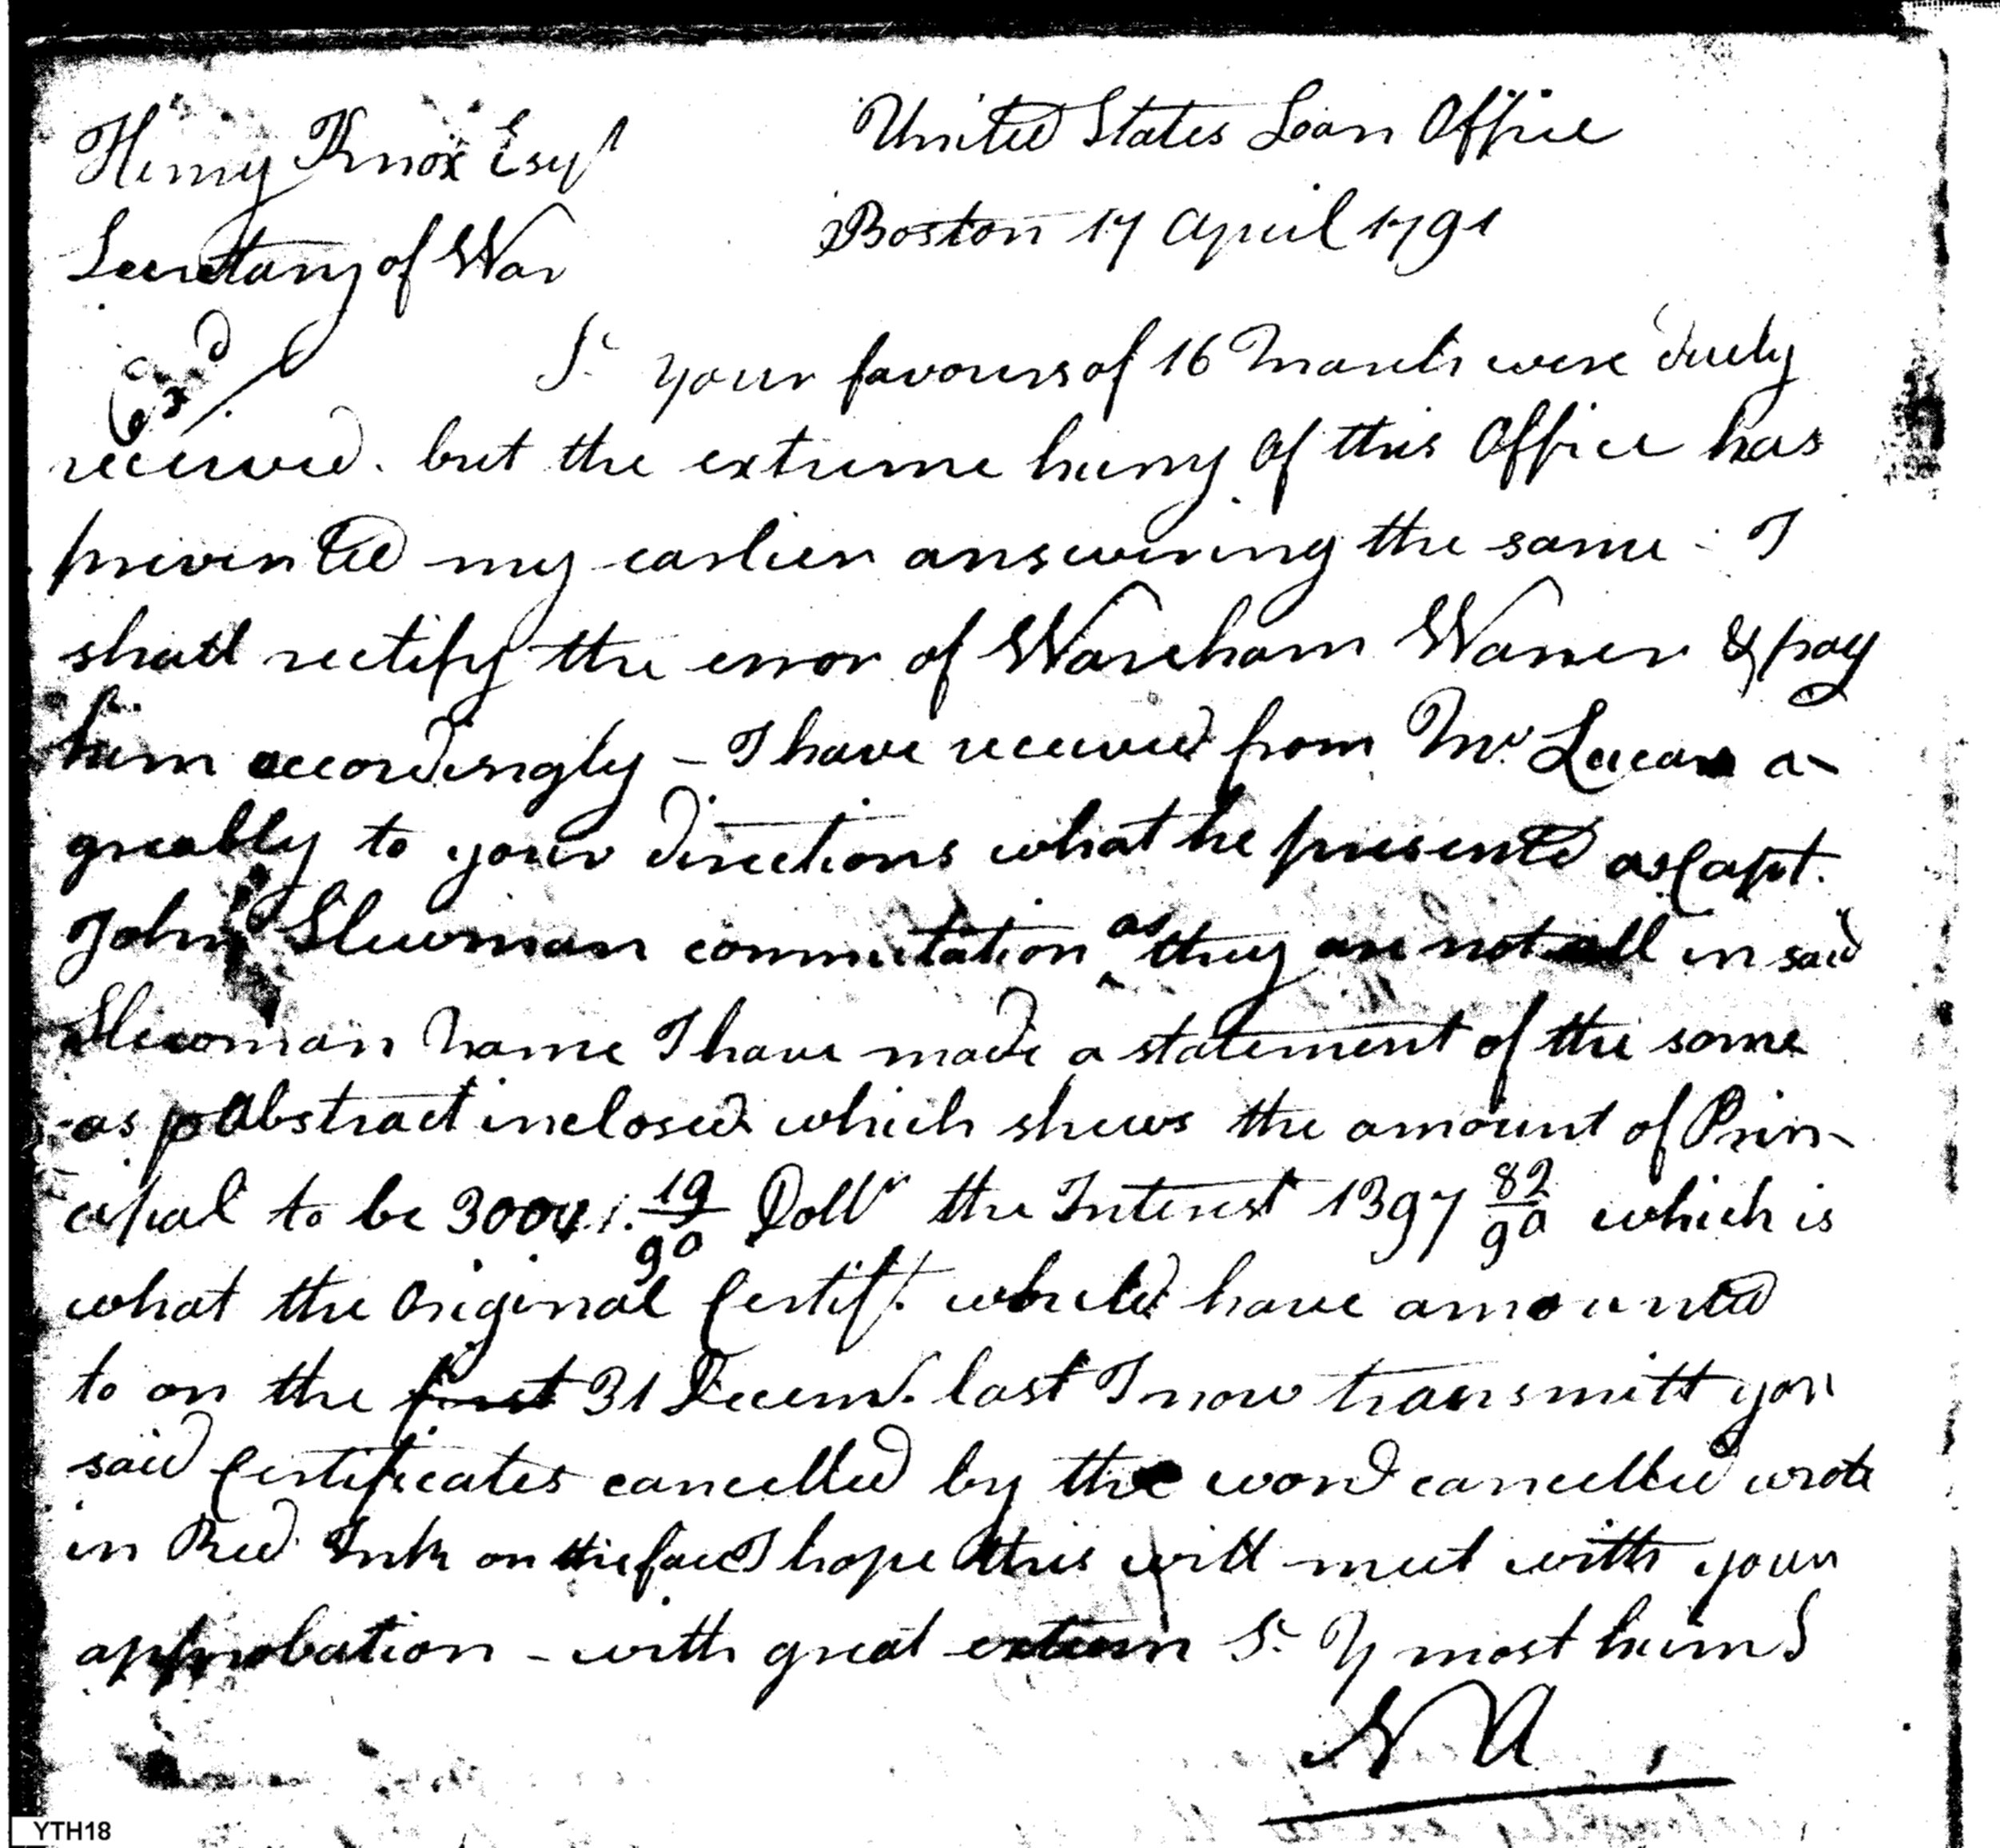 Henry Knox Esqr
United States Loan Office
Secretary of War
Boston 17 April 1791
Exd
Sr. your favours of 16 March were duely
received. but the extreme hurry of this Office has
prevented my earlier answering the same - I
shall rectify the error of Wareham Warner & pay
him accordingly - I have received from Mr. Lucas a-
greably to your directions what he presented as Capt.
John Slewman commutation as they are not all in said
Slewman name I have made a statement of the same
as p Abstract inclosed which shews the amount of Prin-
cipal to be 3004. 19/90 Dollr the Interest 1397 82/90 which is
what the Original Certift. would have amounted
to on the first 31 Decemr. last I now transmitt you
said Certificates cancelled by the word cancelled wrote
in Red Ink on the face I hope this will meet with your
approbation - with great esteem Sr. Y most hum S
N A
YTH18